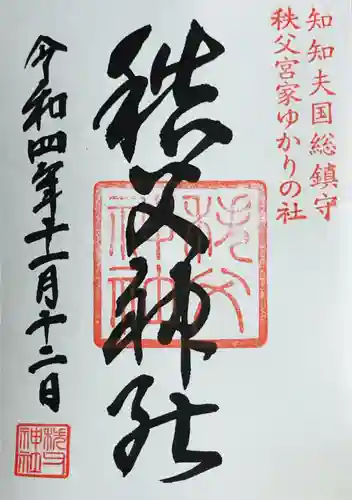 知知夫国総鎮守
秩父宮家ゆかりの社
秩父神社
秩父神社
令和四年十一月十二日
秩父神社